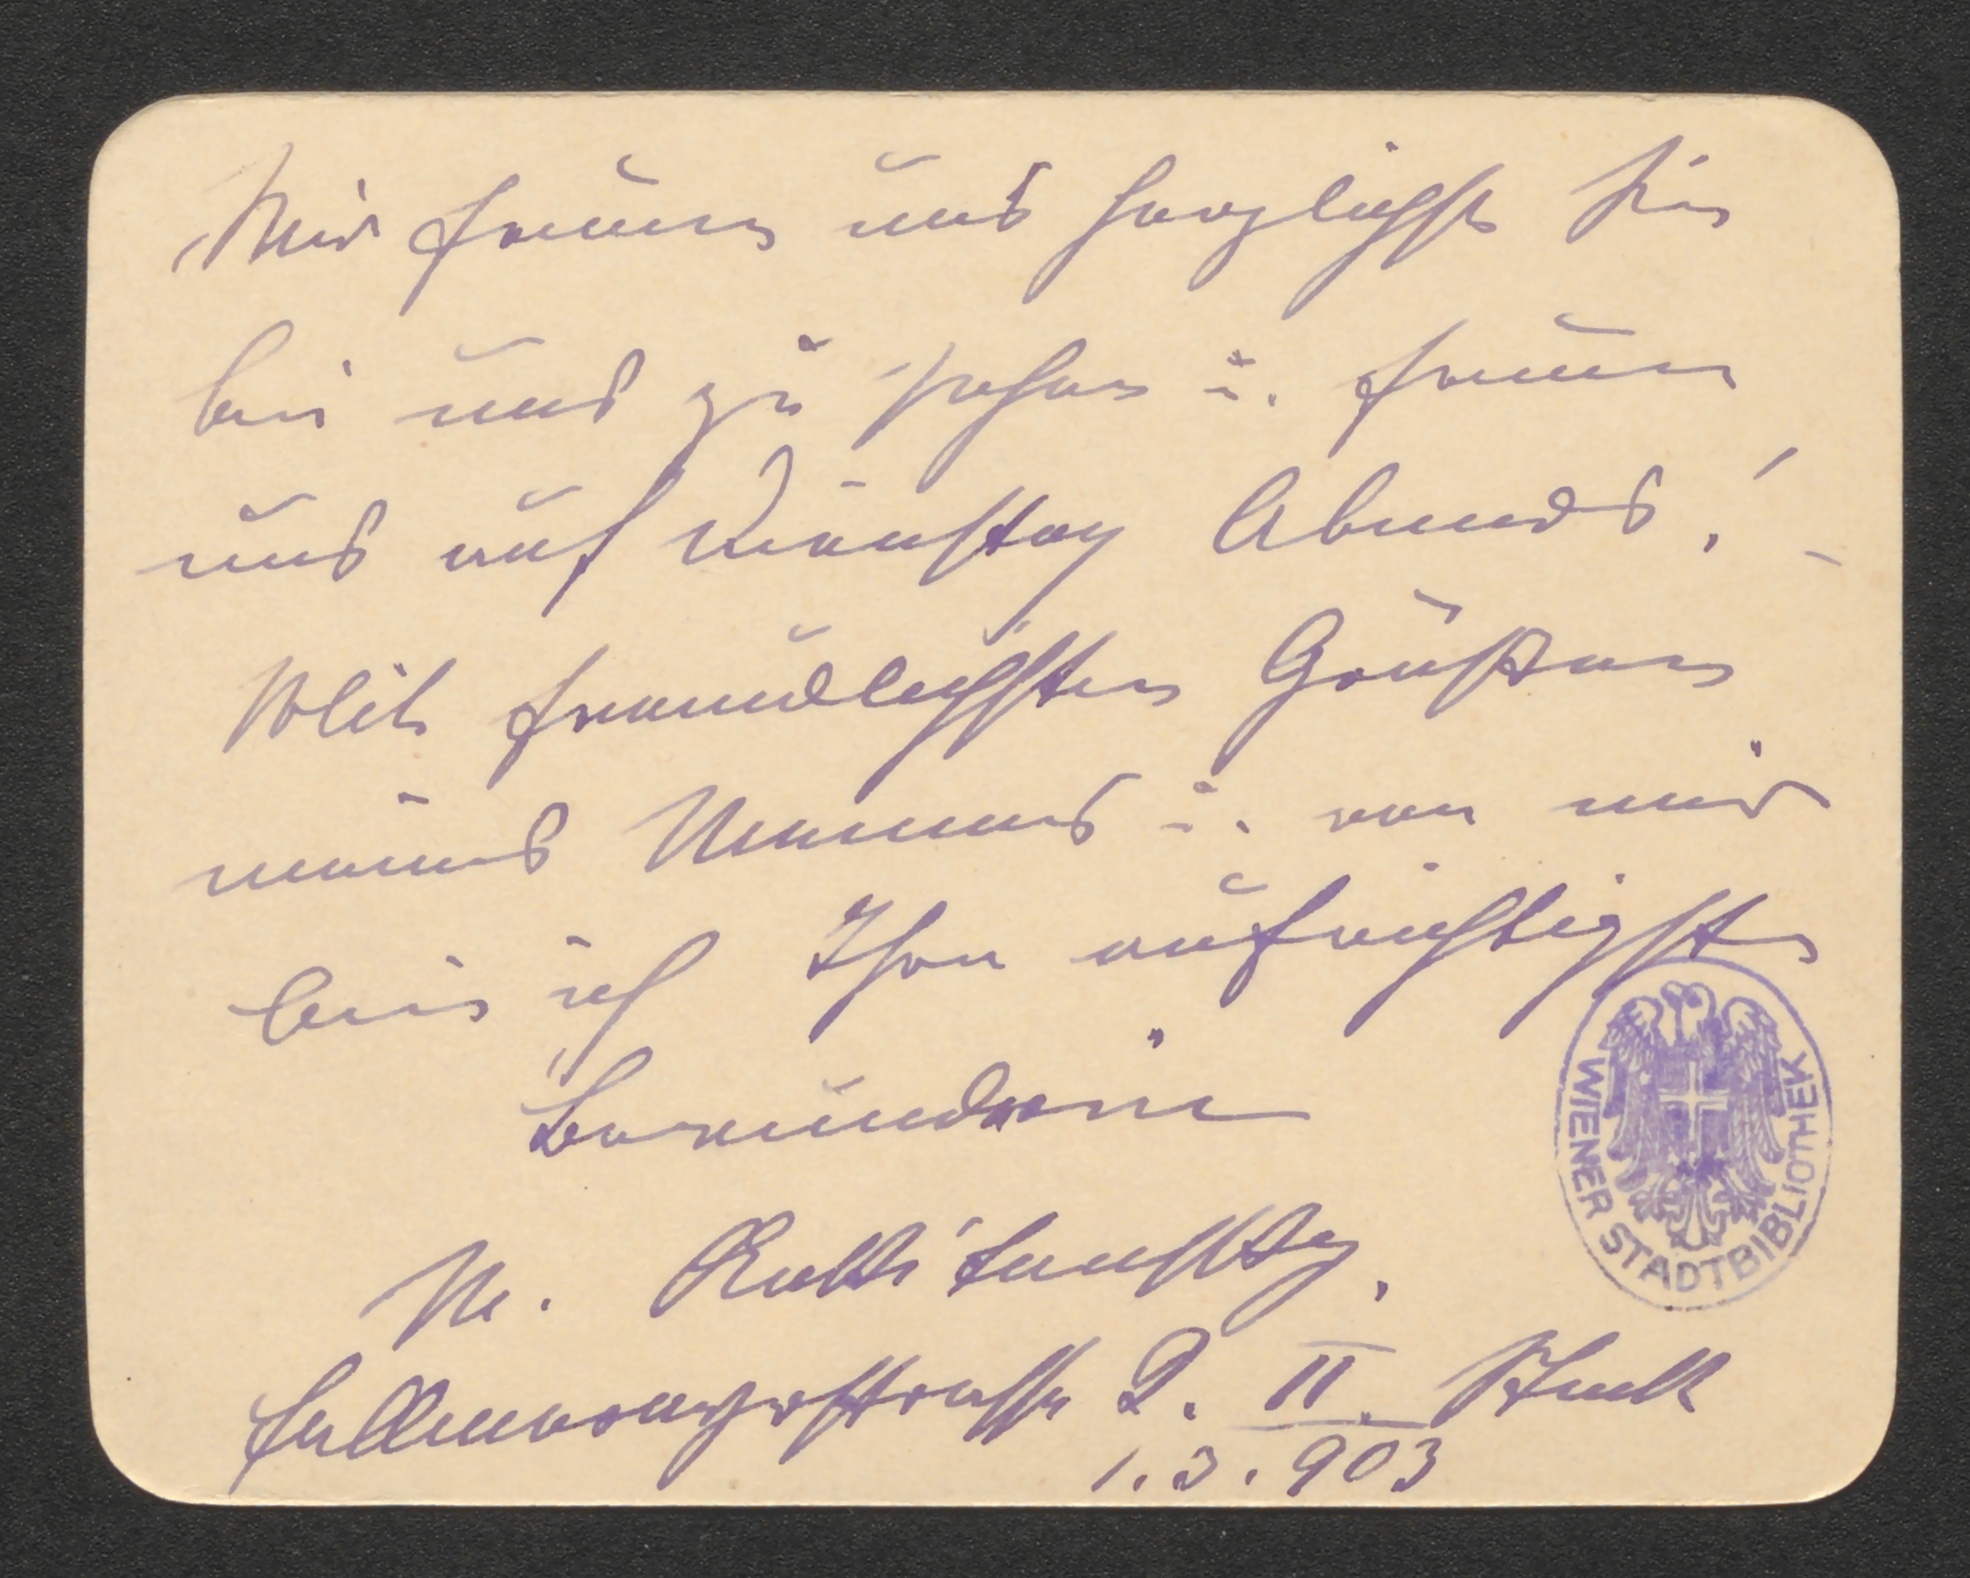 Wir freuen uns herzlichst Sie
bei uns zu sehen u. freuen
uns auf Dienstag Abends! -
Mit freundlichsten Grüßen
meines Mannes u. von mir
bin ich Ihre aufrichtigste
M.
II. Stock
1.3.903
WIENER STADTBIBLIOTHEK